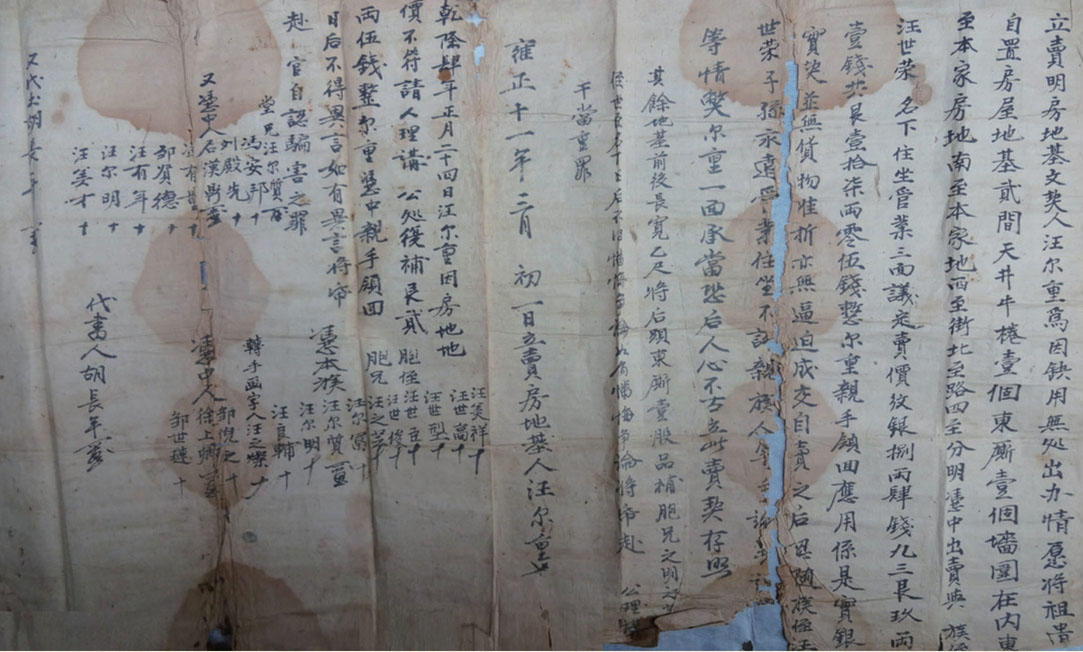 立賣明房地基文契人汪尔重為因缺用無処出办情愿將祖遺
自置房屋地基貳間天井牛棬壹個東厮壹個墻圍在内東
至本家房地南至本家地西至街北至路四至分明憑中出賣與族侄
汪世荣名下住坐管業三面議定賣價紋銀捌兩肆錢九三艮玖両
壹錢共艮壹拾柒両零伍錢整尔重親手領回應用係是實銀
實契並無貨物准折亦無逼迫成交自賣之后恁随族侄汪
世荣子孫永遠受業住坐不許親族人等
等情獘尔重一面承當恐后人心不古立此賣契存照
其餘地基前後長寛乙尺將后頭東厮壹股品補胞兄之明
將帋赴 公理
干當重罪
雍正十一年二月 初一日立賣房地基人汪尔重
乾隆肆年正月二十四日汪尔重因房地地
價不符請人理講公処復補艮貳
両伍錢整尔重憑中親手領回
日后不得異言如有異言將帋
赴 官自認騙害之罪
汪美祥 十
汪世高 十
汪世型 十
胞侄 汪世臣 十
汪世俊 十
胞兄 汪之
汪尔富 十
憑本族 汪尔質
汪尔明 十
汪良輔 十
轉手画字人汪之燦 十
鄒倪之 十
憑中人徐上
鄒世璉 十
代書人胡長年
堂兄汪尔質
馮安邦 十
刘殿先 十
又憑中人石漢
鄒賀德 十
汪有年 十
汪尔明 十
汪美才 十
又代书胡長年